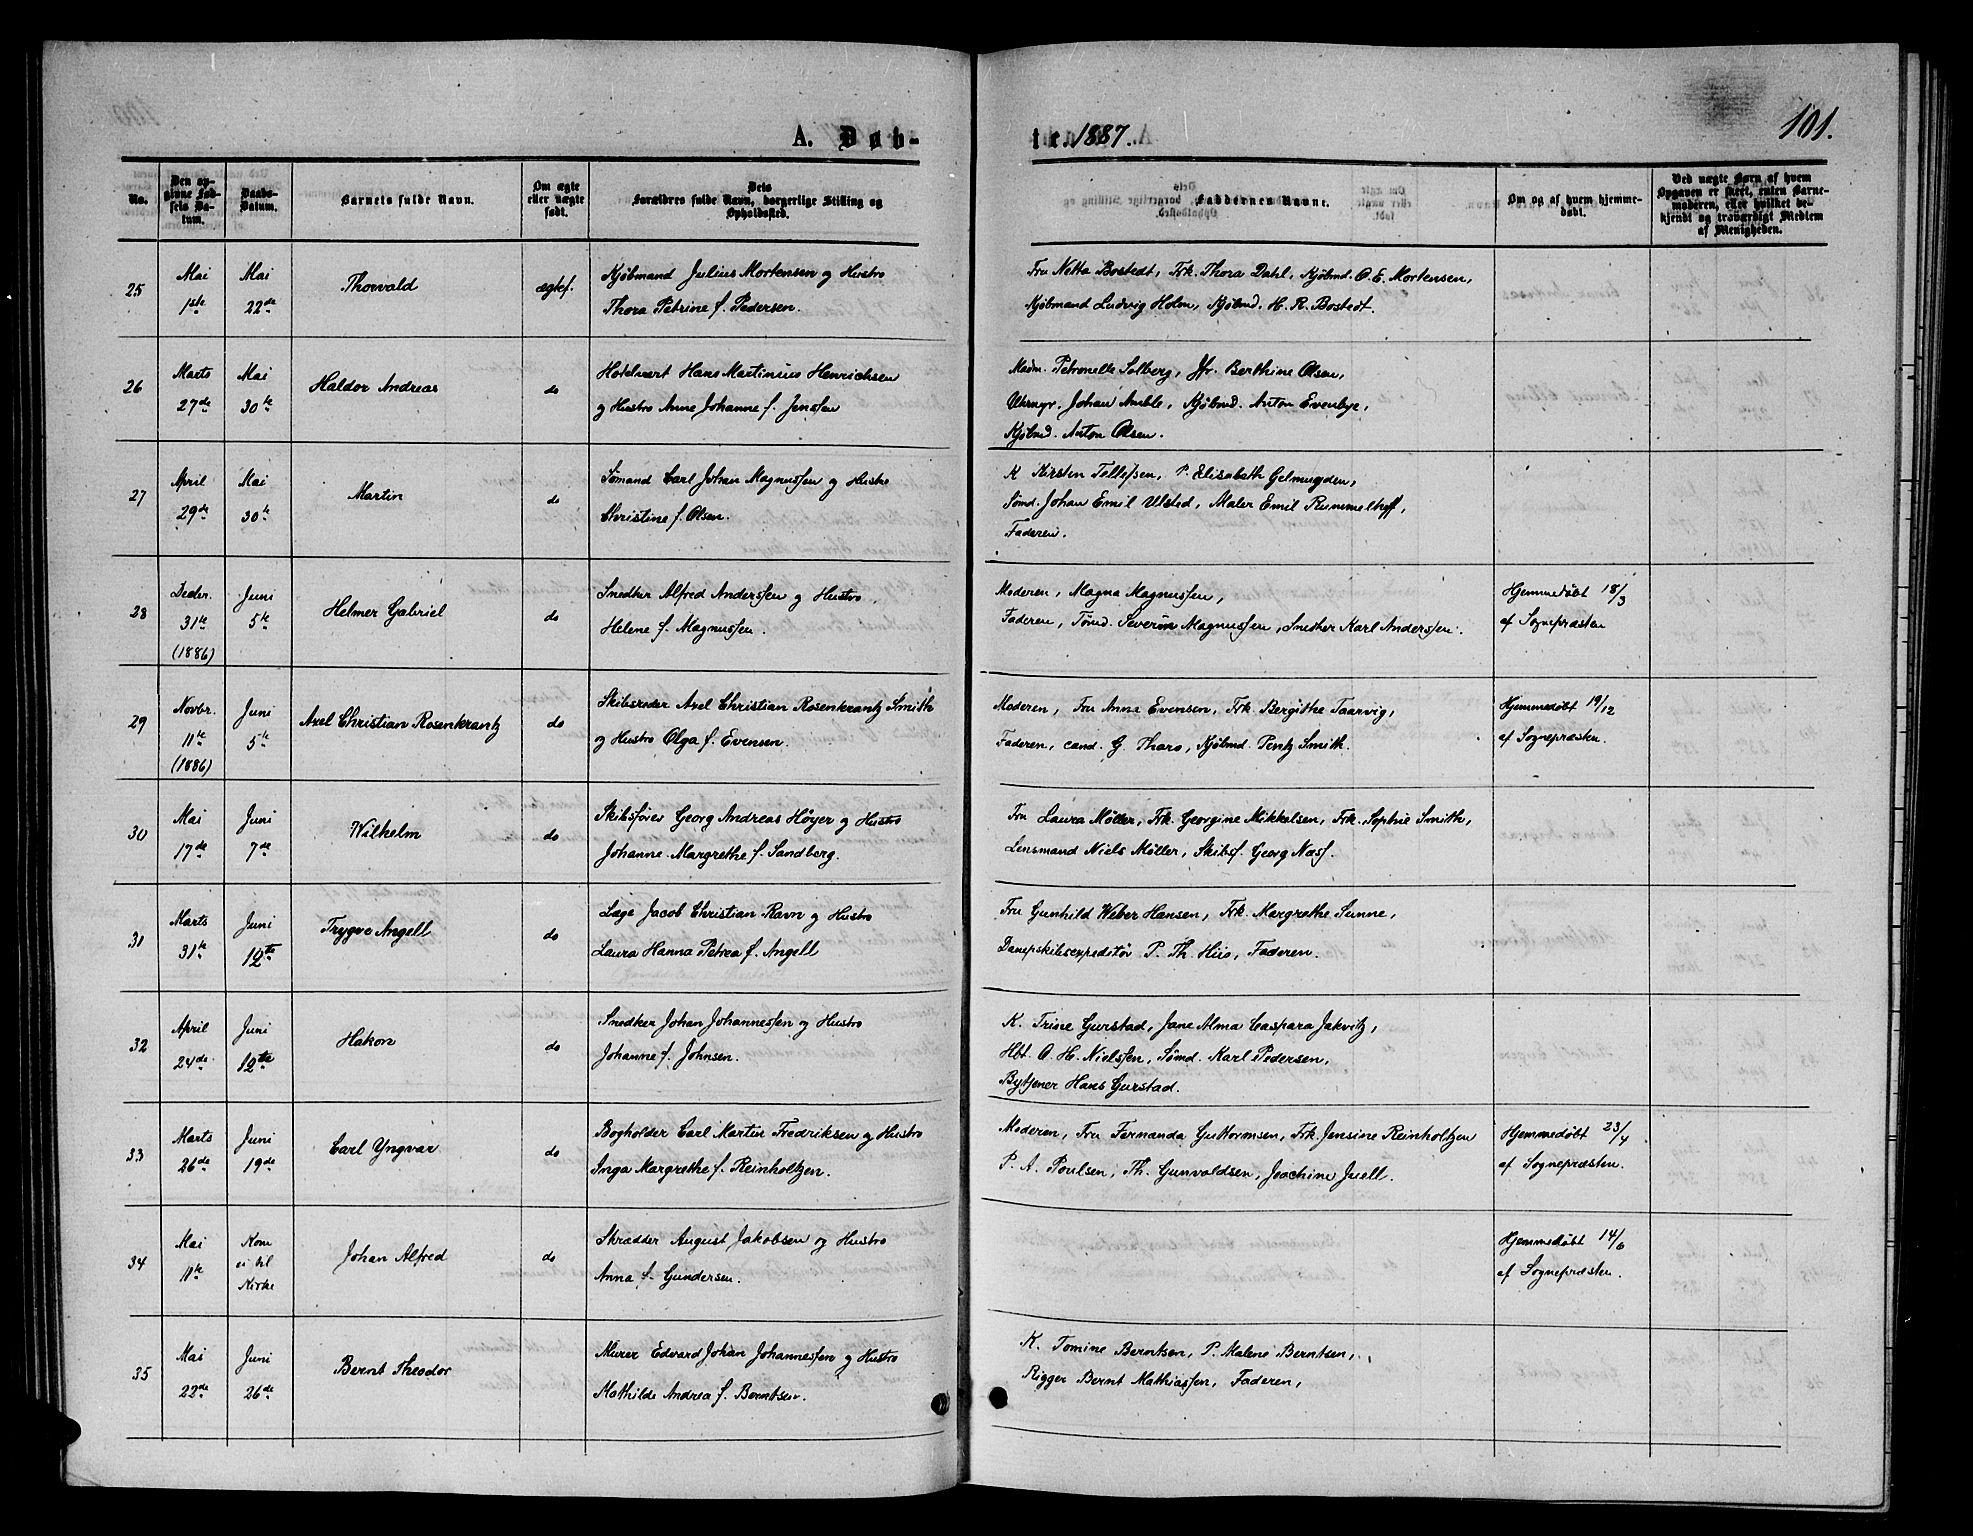 A. Døb-
te. 1887.
101.
No.
Den op-
givne Fød-
sels Da-
tum.
Daabs-
Datum.
Barnets fulde Navn.
Om ægte
eller uægte
født.
Dets
Forældres fulde Navn, borgerlige Stilling og
Opholdssted.
Faddernes Navne.
Om og af hvem hjemme-
døbt.
Ved uægte Børn af hvem
Opgaven er skeet, enten Barne-
moderen, eller hvilket be-
kjendt og troværdigt Medlem
af Menigheden.
25
Mai
1ste
Mai
22de
Thorvald
ægtef.
Kjøbmand Julius Mortensen og Hustro
Thora Petrine f. Pedersen.
Fru Netta Bostedt, Frk. Thora Dahl, Kjøbmd. O. E. Mortensen,
Kjøbmand Ludvig Holm, Kjøbmd. H. R. Bostedt.
26
Marts
27de
Mai
30te
Haldor Andreas
do
Hotelvært Hans Martinius Henrichsen
og Hustro Anne Johanne f. Jenssen
Madm. Petronelle Solberg, Jfr. Berthine Olsen,
Uhrmgr. Johan Amble, Kjøbmd. Anton Evenbye,
Kjøbmd. Anton Olsen.
27
April
29de
Mai
30te
Martin
do
Sømand Carl Johan Magnussen og Hustro
Christine f. Olsen.
K Kirsten Tellefsen, P. Elisabeth Gelmuyden,
Sømd. Johan Emil Ulsted, Maler Emil Rummelhoff,
Faderen.
28
Decbr.
31te
(1886)
Juni
5te
Helmer Gabriel
do
Snedker Alfred Anderssen og Hustro
Helene f. Magnussen.
Moderen, Magna Magnussen,
Faderen, Tømd. Severin Magnussen, Snedker Karl Anderssen.
Hjemmedøbt 18/3
af Sognepræsten
29
Novbr.
11te
(1886)
Juni
5te
Axel Christian Rosenkrantz
do
Skibsreder Axel Christian Rosenkrantz Smith
og Hustro Olga f. Evensen.
Moderen, Fru Anna Evensen, Frk. Bergitte Taarvig,
Faderen, cand. G. Thars, Kjøbmd. Pentz Smith.
Hjemmedøbt 19/12
af Sognepræsten.
30
Mai
17de
Juni
7de
Wilhelm
do
Skibsfører Georg Andreas Høyer og Hustro
Johanne Margrethe f. Sandberg.
Fru Laura Møller, Frk. Georgine Mikkelsen, Frk. Sophie Smith,
Lensmand Niels Møller, Skibsf. Georg Næsf.
31
Marts
31te
Juni
12te
Trygve Angell
do
Læge Jacob Christian Ravn og Hustro
Laura Hanna Petrea f. Angell
Fru Gunhild Weber Hansen, Frk. Margrethe Sunne,
Dampskibsexpeditør P. Th. Hiis, Faderen.
32
April
24de
Juni
12te
Hakon
do
Snedker Johan Johannessen og Hustro
Johanne f. Johnsen.
K. Trine Gurstad, Jane Alma Caspara Jakvitz,
Hbt. O. H. Nielssen, Sømd. Karl Pedersen,
Bytjener Hans Gurstad.
33
Marts
26de
Juni
19de
Carl Yngvar
do
Bogholder Carl Martin Fredriksen og Hustro
Inga Margrethe f. Reinholtzen.
Moderen, Fru Fernanda Guttormsen, Frk. Jensine Reinholtzen
P. A. Poulsen, Th. Gunvaldsen, Joachim Juell.
Hjemmedøbt 23/4
af Sognepræsten.
34
Mai
11te
Kom
ei til
Kirke
Johan Alfred
do
Skrædder August Jakobsen og Hustro
Anna f. Gundersen.
Hjemmedøbt 14/6
af Sognepræsten.
35
Mai
22de
Juni
26de
Bernt Theodor
Murer Edvard Johan Johannessen og Hustro
Mathilde Andrea f. Berntsen.
K. Tomine Berntsen, P. Malene Berntsen,
Rigger Bernt Mathiassen, Faderen,